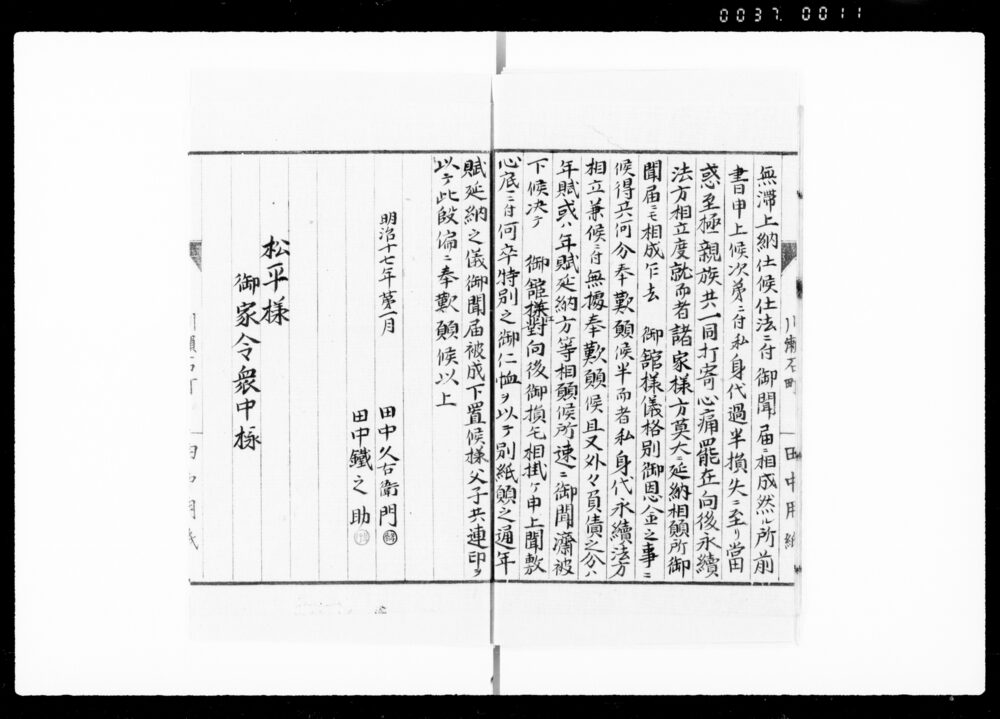 0037 0011
田中用紙
無滞上納仕候仕法ニ付御聞届ニ相成然ル所前
書申上候次第ニ付私身代過半損失ニ至リ當
惑至極親族共一同打寄心痛罷在向後永續
法方相立度就而者諸家様方莫大ニ延納相願所御
聞届ニモ相成乍去 御館様儀格別御恩金之事ニ
候得共何分奉歎願候半而者私身代永續法方
相立兼候ニ付無據奉歎願候且又外々負債之分ハ
年賦或ハ年賦延納方等相願候所速ニ御聞濟被
下候决テ 御館様對向後御損毛相掛ケ申上間敷
心底ニ付何卒特別之御仁恤ヲ以テ別紙願之通年
賦延納之儀御聞届被成下置候様父子共連印ヲ
以テ此段偏ニ奉歎願候以上
明治十七年第一月
田中久右衛門
田中鐵之助
松平様
御家令衆中様